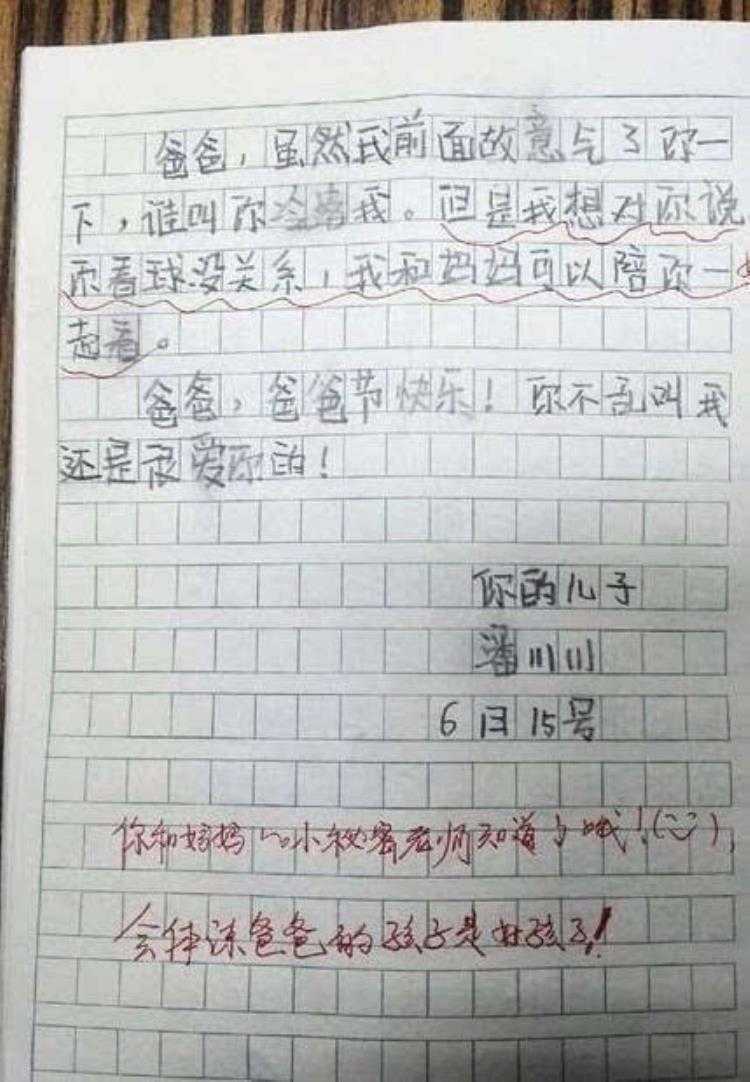 爸爸，虽然我前面故意气了你一
下，谁叫你冷落我。但是我想对你说
你看球没关系，我和妈妈可以陪你一
起看。
爸爸，爸爸节快乐！你不乱叫我
还是很爱你的！
你的儿子
潘川川
6月15号
你和妈妈的小秘密老师知道了哦！(
会体谅爸爸的孩子是好孩子！